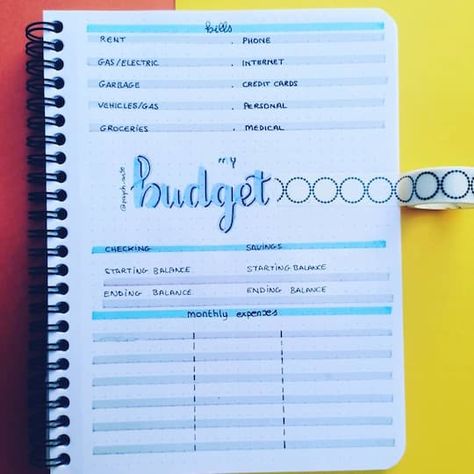 bills
RENT . PHONE
GAS/ELECTRIC . INTERNET
GARBAGE . CREDIT CARDS
VEHICLES/GAS . PERSONAL
GROCERIES . MEDICAL
MY
budget
CHECKING SAVINGS
STARTING BALANCE STARTING BALANCE
ENDING BALANCE ENDING BALANCE
monthly expenses